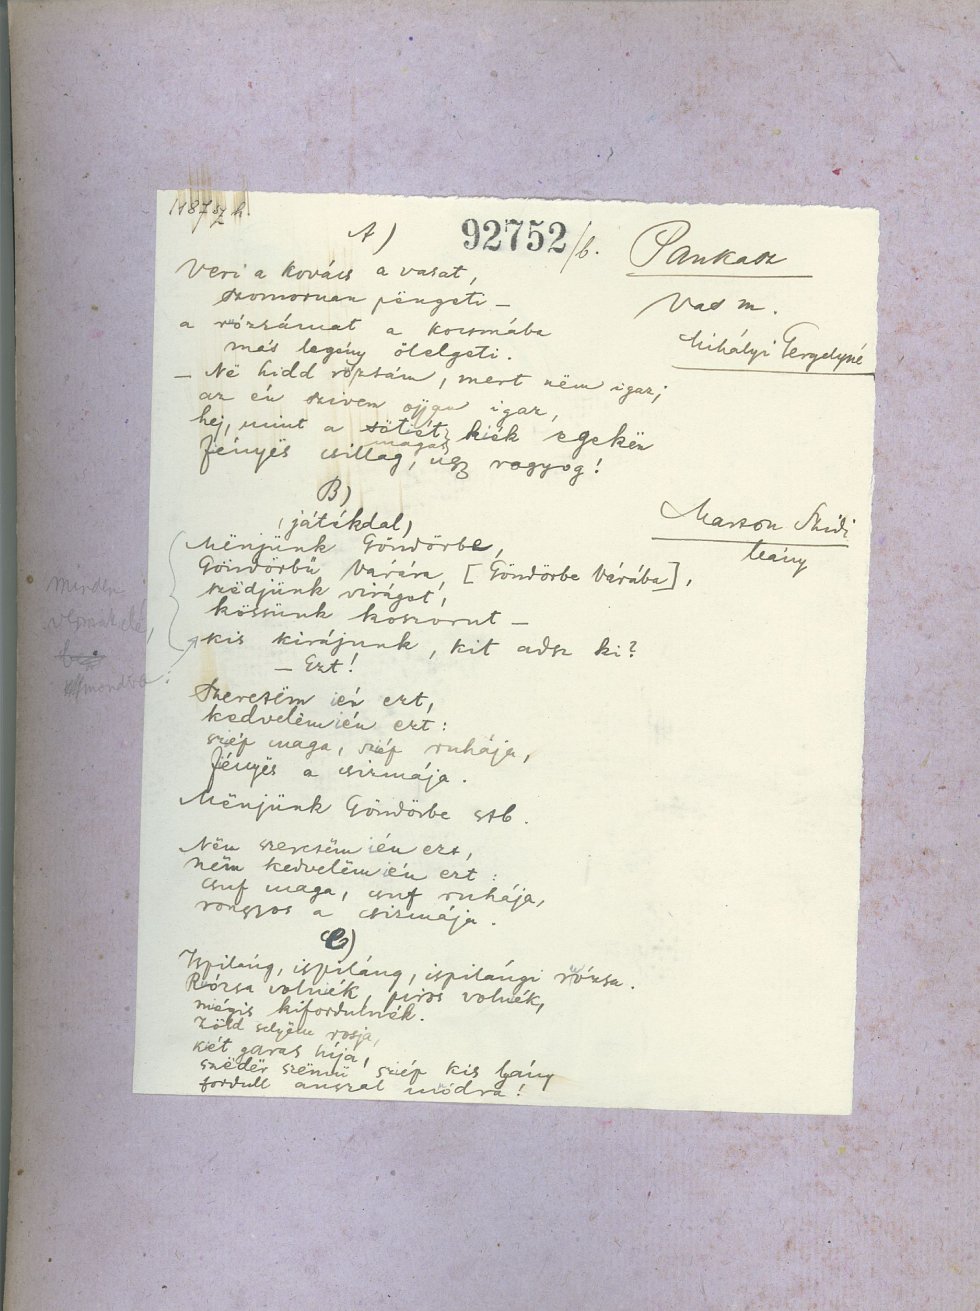 A)
92752/b.
Pankasz
Vas m.
Mihályi Gergelyné
Veri a kovács a vasat,
szomoruan pëngeti —
a rózsámat a kocsmába
más legény ölelgeti.
— Në hidd rózsám, mert nëm igaz;
az én szivem ojjan igaz,
hej, mint a sötiét kiék egekën
magas
fényës csillag, úgy ragyog!
B)
(játékdal)
Marton Shidi
leány
Mënjünk Göndörbe,
Göndörbü Várára, [Göndörbe Várába],
szëdjünk virágot,
kössünk koszorut —
kis kirájunk, kit adsz ki?
— Ezt!
minden
Szeretëm ién ezt,
kedvelëm ién ezt:
sziép maga, sziép ruhája,
fényës a csizmája.
Mënjünk Göndörbe stb.
Nëm szeretëm ién ezt,
nëm kedvelëm ién ezt:
csuf maga, csuf ruhája,
rongyos a csizmája.
C)
Ispiláng, ispiláng, ispilángi rózsa.
Rózsa volnék, piros volnék,
miégis kifordulnék.
Zöld selyëm rosja,
kiét garas híja,
szëdër szëmü sziép kis lány
fordull angyal módra!